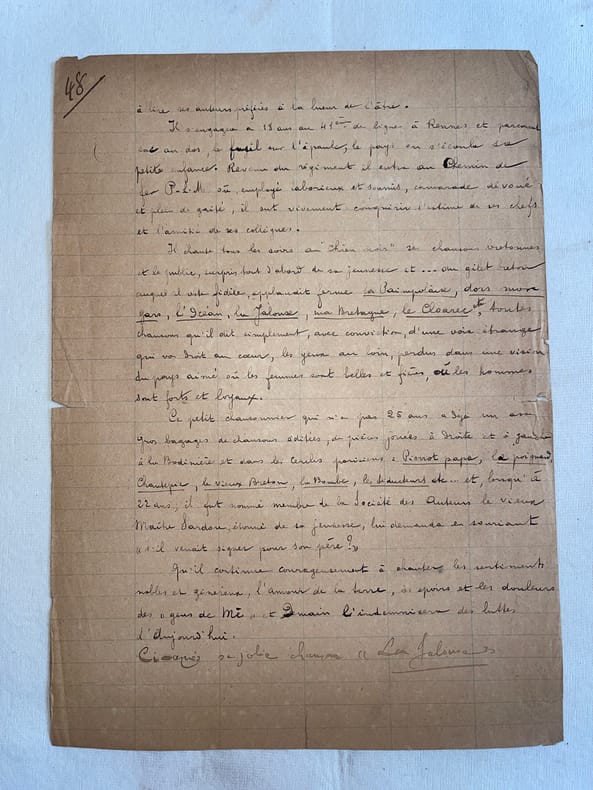 48
à lire ses auteurs préférés à la lueur de l'âtre.
Il s'engagea à 18 ans au 41ème de ligne à Rennes et parcourut
sac au dos, le fusil sur l'épaule, le pays où s'écoula sa
petite enfance. Revenu du régiment il entra au Chemin de
fer P-L-M où, employé laborieux et soumis, camarade dévoué
et plein de gaîté, il sut vivement conquérir l'estime de ses chefs
et l'amitié de ses collègues.
Il chante tous les soirs au "Chien noir" ses chansons bretonnes
et le public, surpris tout d'abord de sa jeunesse et ... du gilet breton
auquel il reste fidèle, applaudit ferme la Paimpolaise, dors mon
gars, l'Océan, la Jalouse, ma Bretagne, le Cloarec, toutes
chansons qu'il dit simplement, avec conviction, d'une voix étrange
qui va droit au cœur, les yeux au loin, perdus dans une vision
du pays aimé où les femmes sont belles et fières, où les hommes
sont forts et loyaux.
Ce petit chansonnier qui n'a pas 25 ans a déjà un assez
gros bagages de chansons éditées, de pièces jouées à droite et à gauche
à la Bodinière et dans les cercles parisiens : Pierrot papa, la
Chantepie, le vieux Breton, la Bombe, les séducteurs etc ... et, lorsqu'à
22 ans, il fut nommé membre de la Société des Auteurs le vieux
Maître Sardou, étonné de sa jeunesse, lui demanda en souriant
« s'il venait signer pour son père ? »
Qu'il continue courageusement à chanter les sentiments
nobles et généreux, l'amour de la terre, les espoirs et les douleurs
des « gens de Mé » et Demain l'indemnisera des luttes
d'Aujourd'hui.
Ci-après sa jolie chanson « La Jalouse »